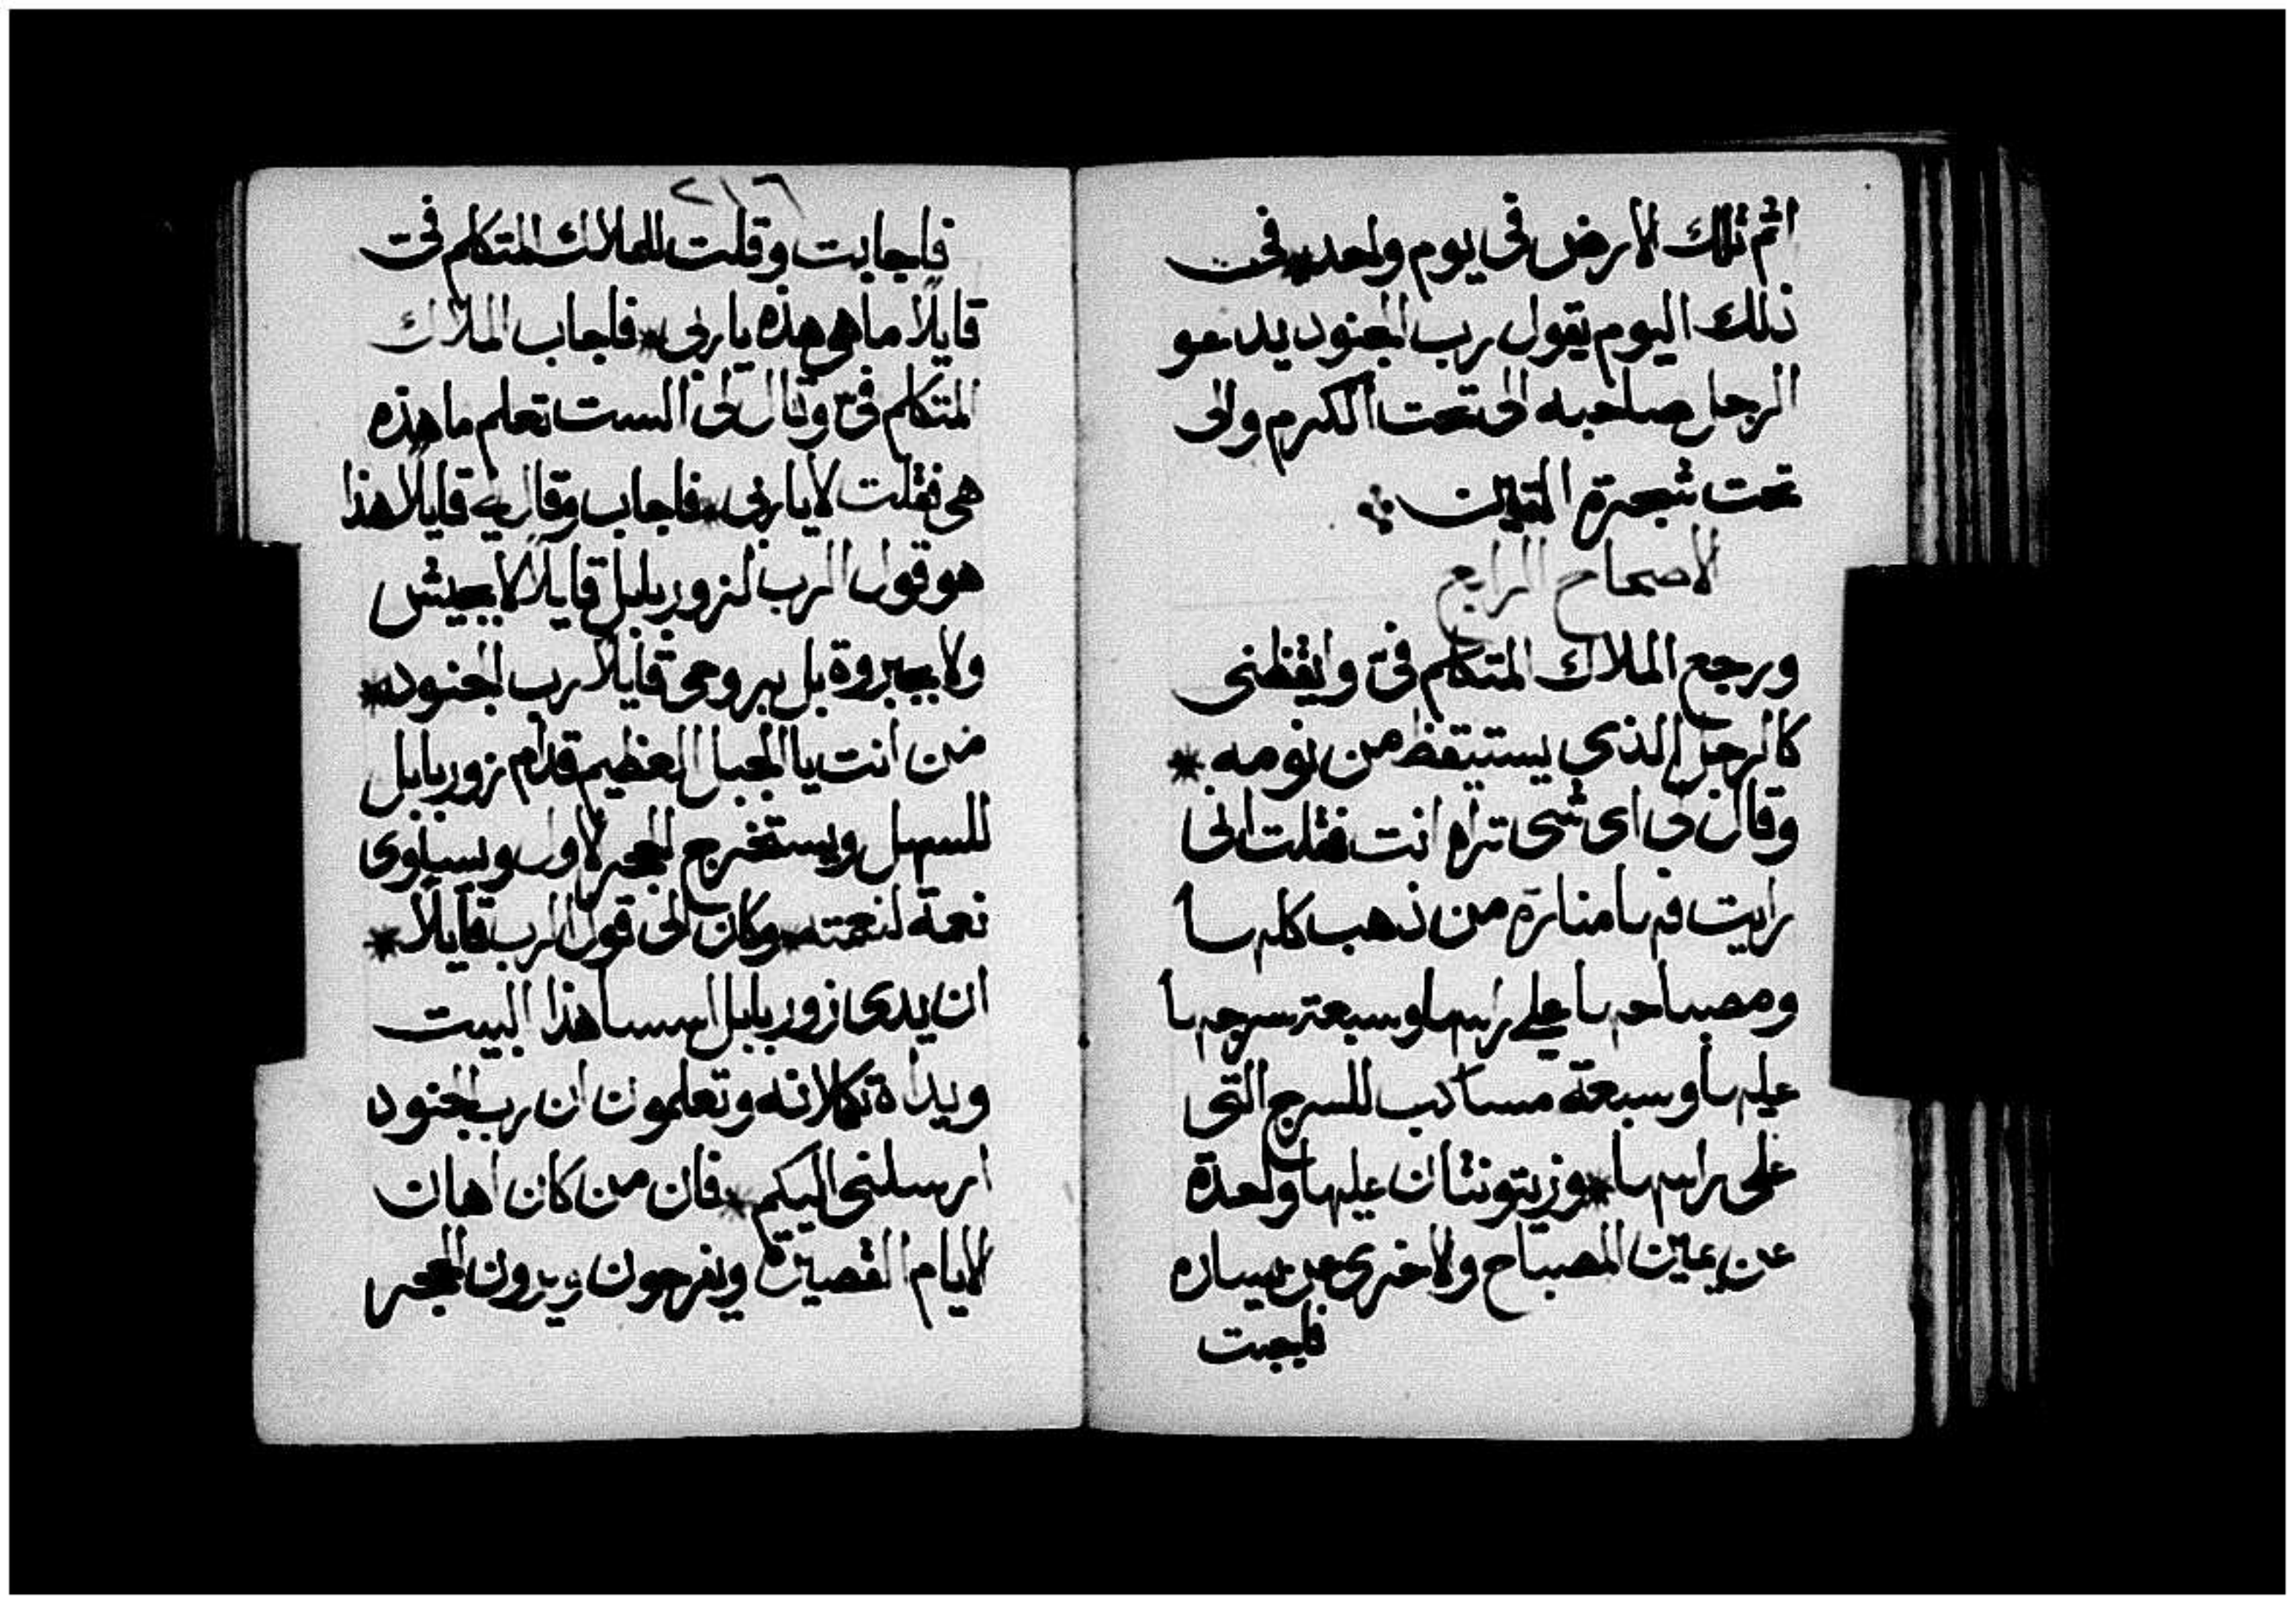 اثم تلك الارض فى يوم واحد * فى
ذلك اليوم يقول رب الجنود يدعو
الرجل صاحبه الى تحت الكرم والى
تحت شجرة التين
الاصحاح الرابع
ورجع الملاك المتكلم فىّ وايقظنى
كالرجل الذى يستيقظ من نومه *
وقال لى اى شى تراه انت فقلت انى
رايت فها منارة من ذهب كلها
ومصباحها على راسها وسبعة سرجها
عليها وسبعة مساكب للسرج التى
على راسها * وزيتونتان عليها واحدة
عن يمين المصباح والاخرى عن يساره
فاجبت
٢١٦
فاجابت وقلت للملاك المتكلم فى
قايلًا ما هى هذه يا ربى * فاجاب الملاك
المتكلم فىّ وقال لى الست تعلم ما هذه
هى فقلت لا يا ربى * فاجاب وقال لى قايلًا هذا
هو قول الرب لزوربابل قايلًا لا بجيش
ولا بجبروة بل بروحى قايلًا رب الجنود *
من انت يا الجبل العظيم قدام زوربابل
للسهل ويستخرج الحجر الاول ويساوى
نعمة لنعمته * وكان الى قول الرب قايلًا *
ان يدى زوربابل اسسا هذا البيت
ويداه تكملانه وتعلمون ان رب الجنود
ارسلنى اليكم * فان من كان اهان
الايام القصيرة ويفرحون ويرون الحجر